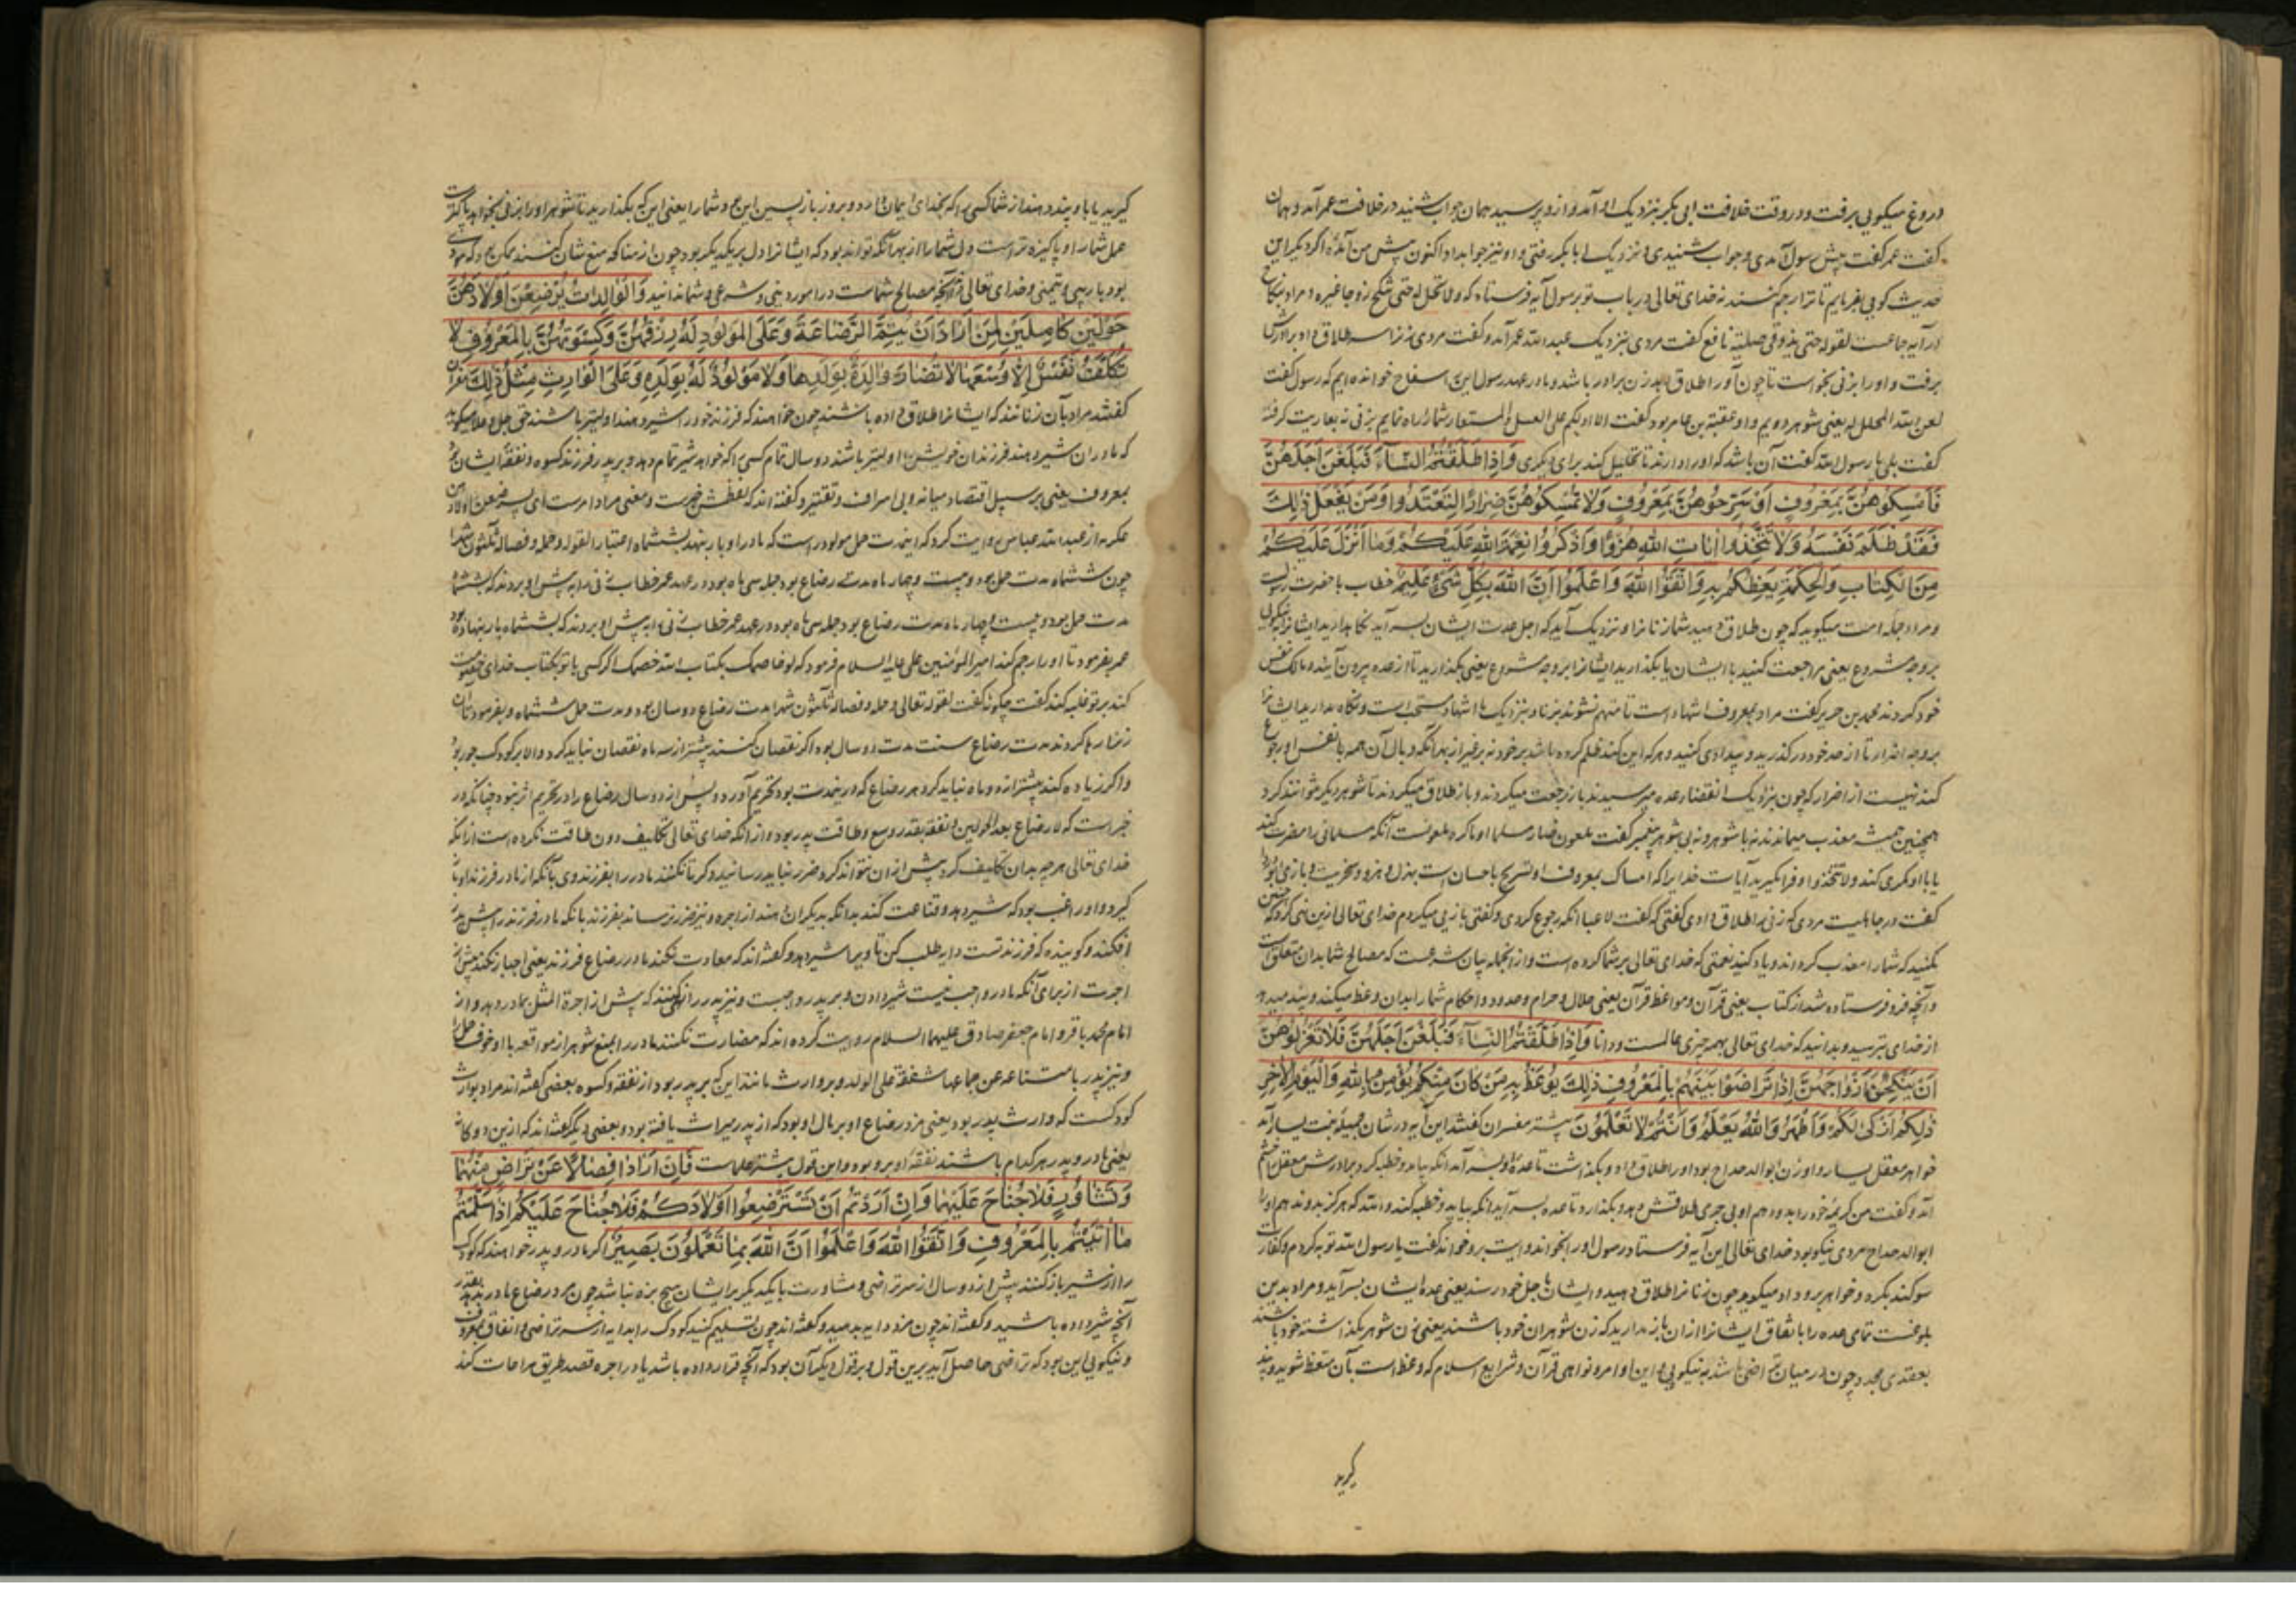 دروغ میکویی برفت و در وقت خلافت ابی بکر بنزدیک او آمد و ازو پرسید همان جواب شنید در خلافت عمر آمد و همان
کفت عمر کفت پیش رسول آمدی و جواب شنیدی و نزدیک ابا بکر رفتی و او نیز جواب داد اکنون پیش من آمدۀ اکر دیکر این
حدیث کویی بفرمایم تا ترا رجم کنند نه خدای تعالی در باب تو برسول آیه فرستاد که ولا تحل له حتی تنکح زوجا غیره و مراد بنکاح
در آیه جماعست لقوله حتی یذوق عسیلته نافع کفت مردی بنزدیک عبد الله عمر آمد و کفت مردی زنرا سه طلاق داد برادرش
برفت و او را بزنی بخواست تا چون آور اطلاق بدهد زن برادر باشد و ما در عهد رسول این سفاح خوانده ایم که رسول کفت
لعن الله المحلل له یعنی شوهر دویم و او عقبة بن عامر بود کفت الا ادلکم علی العسل المستعار شما را راه نمایم بزفی بعاریت کرفته
کفت بلی یا رسول الله کفت آن باشد که او را دارند تا تحلیل کند برای دیکری وَاِذَا طَلَّقْتُمُ النِّسَاءَ فَبَلَغْنَ اَجَلَهُنَّ
فَاَمْسِكُوهُنَّ بِمَعْرُوفٍ اَوْ سَرِّحُوهُنَّ بِمَعْرُوفٍ وَلَا تُمْسِكُوهُنَّ ضِرَارًا لِتَعْتَدُوا وَمَنْ يَفْعَلْ ذٰلِكَ
فَقَدْ ظَلَمَ نَفْسَهُ وَلَا تَتَّخِذُوا اٰيَاتِ اللهِ هُزُوًا وَاذْكُرُوا نِعْمَةَ اللهِ عَلَيْكُمْ وَمَا اَنْزَلَ عَلَيْكُمْ
مِنَ الْكِتَابِ وَالْحِكْمَةِ يَعِظُكُمْ بِهِ وَاتَّقُوا اللهَ وَاعْلَمُوا اَنَّ اللهَ بِكُلِّ شَیْءٍ عَلِيمٌ خطاب با حضرت رسولست
و مراد جمله امت میکوید که چون طلاق دهید شما زنانرا و نزدیک آید که اجل عدت ایشان بسر آید نکاه دارید ایشانرا بنیکویی
بر وجه مشروع یعنی مراجعت کنید با ایشان یا بکذارید ایشانرا بر وجه مشروع یعنی بکذارید تا از عده بیرون آیند و مالک نفس
خود کردند محمد بن جریر کفت مراد بمعروف اشهاد است تا متهم نشوند بزنا و بنزدیک ما اشهاد مستحب است و نکاه مدارید ایشانرا
بر وجه اضرار تا از حد خود در کذرید و بیدادی کنید و هر که این کند ظلم کرده باشد بر خود نه بر غیر از بهر آنکه وبال آن همه با نفس او رجوع
کند از اضرار که چون بنزدیک انقضاء عده میرسیدند باز رجعت میکردند و باز طلاق میکردند تا شوهر دیکر نتوانند کرد
همچنین همیشه معذب میماندند نه با شوهر و نه بی شوهر پیغمبر کفت ملعون من ضار مسلما او ماکره ملعونست آنکه مسلمانی را مضرت کند
یا با او مکری کند ولا تتخذوا و فرا مکیرید آیات خدایرا که امساک بمعروف او تسریح باحسان است بهزل و هزو و سخریت و بازی
کفت در جاهلیت مردی که زنی را طلاق دادی کفتی که کفت لاعبا آنکه رجوع کردی و کفتی بازی میکردم خدای تعالی ازین نهی کرد که چنین
مکنید که شما را معذب کرداند و یاد کنید نعمتی که خدای تعالی بر شما کرده است و از انجمله بیان شریعت که مصالح شما بدان متعلق است
و آنچه فرو فرستاده شد از کتاب یعنی قرآن و مواعظ قرآن یعنی حلال و حرام و حدود و احکام شما را بدان وعظ میکند و پند میدهد
از خدای بترسید و بدانید که خدای تعالی بهمه چیزی عالمست و دانا وَاِذَا طَلَّقْتُمُ النِّسَاءَ فَبَلَغْنَ اَجَلَهُنَّ فَلَا تَعْضُلُوهُنَّ
اَنْ يَنْكِحْنَ اَزْوَاجَهُنَّ اِذَا تَرَاضَوْا بَيْنَهُمْ بِالْمَعْرُوفِ ذٰلِكَ يُوعَظُ بِهِ مَنْ كَانَ مِنْكُمْ يُؤْمِنُ بِاللهِ وَالْيَوْمِ الْاٰخِرِ
ذٰلِكُمْ اَزْكٰى لَكُمْ وَاَطْهَرُ وَاللهُ يَعْلَمُ وَاَنْتُمْ لَا تَعْلَمُونَ بیشتر مفسران کفتند این آیه در شان جمیله بنت یسار آمد
خواهر معقل یسار و او زن ابو الدحداح بود او را طلاق داد و بکذاشت تا عدۀ او بسر آمد آنکه بیامد و خطبه کرد برادرش معقل بخشم
آمد و کفت من کریمۀ خود را بدو دهم او بی جرمی طلاقش دهد و بکذارد تا عده بسر آید آنکه بیاید و خطبه کند والله که هرکز بدو ندهم او را
ابو الدحداح مردی نیکو بود خدای تعالی این آیه فرستاد رسول او را بخواند و آیت برو خواند کفت یا رسول الله توبه کردم و کفارت
سوکند بکرد و خواهر برو داد میکوید چون زنانرا طلاق دهید و ایشان باجل خود رسند یعنی عدۀ ایشان بسر آید و مراد بدین
بلوغست تمامی عده را باتفاق ایشانرا از آن باز مدارید که زن شوهران خود باشند یعنی زن شوهر بکذاشته خود باشند
بعقدی مجدد چون در میان تراضی باشد به نیکویی و این اوامر و نواهی قرآن و شرایع اسلام که وعظ است بآن متعظ شوید و پند
کیرید
کیرید یا باو پند دهند از شما کسی را که بخدای ایمان دارد و بروز بازپسین این هم و شما را یعنی این که بکذارید تا شوهر او را بزنی بخواهد پاکتر است
عمل شما را و پاکیزه تر است دل شما را از بهر آنکه تواند بود که ایشانرا دل بر یکدیکر بود چون از مناکحه منع شان کنند ممکن بود که مودی
بود بریبی و تهمتی و خدای تعالی داند آنچه مصالح شماست در امور دینی و شرعی و شما ندانید وَالْوَالِدَاتُ يُرْضِعْنَ اَوْلَادَهُنَّ
حَوْلَيْنِ كَامِلَيْنِ لِمَنْ اَرَادَ اَنْ يُتِمَّ الرَّضَاعَةَ وَعَلَى الْمَوْلُودِ لَهُ رِزْقُهُنَّ وَكِسْوَتُهُنَّ بِالْمَعْرُوفِ لَا
تُكَلَّفُ نَفْسٌ اِلَّا وُسْعَهَا لَا تُضَارَّ وَالِدَةٌ بِوَلَدِهَا وَلَا مَوْلُودٌ لَهُ بِوَلَدِهِ وَعَلَى الْوَارِثِ مِثْلُ ذٰلِكَ مفسران
کفتند مراد بآن زنانند که ایشانرا طلاق داده باشند چون خواهند که فرزند خود را شیر دهند اولیتر باشند حق جل و علا میکوید
که مادران شیر دهند فرزندان خویش را و اولیتر باشند دو سال تمام کسی را که خواهد شیر تمام دهد و بر پدر فرزند کسوه و نفقۀ ایشان بود
بمعروف یعنی بر سبیل اقتصاد میانه و بی اسراف و تقتیر و کفته اند که لفظش خبرست و معنی مراد امرست ای یرضعن اولادهن
عکرمه از عبد الله عباس روایت کرد که این مدت حمل مولود راست که مادر او بار بنهد بششماه اعتبار القوله وحمله وفصاله ثلثون شهرا
چون ششماه مدت حمل بود و بیست و چهار ماه مدت رضاع بود جمله سی ماه بود و در عهد عمر خطاب زنی را به پیش او بردند که بششماه
مدت حمل بود و بیست و چهار ماه مدت رضاع بود جمله سی ماه بود و در عهد عمر خطاب زنی را به پیش او بردند که بششماه بار بنهاده بود
عمر بفرمود تا او را رجم کنند امیر المؤمنین علی علیه السلام فرمود که لو خاصمک بکتاب الله خصمک اکر کسی با تو بکتاب خدای خصومت
کند بر تو غلبه کند کفت چکونه کفت لقوله تعالی وحمله وفصاله ثلثون شهرا مدت رضاع دو سال بود و مدت حمل ششماه و بفرمود تا آن
زنرا رها کردند مدت رضاع سنت مدت دو سال بود اکر نقصان کنند بیشتر از سه ماه نقصان نباید کرد و الا بر کودک جور بود
و اکر زیاده کند بیشتر از دو ماه نباید کرد هر رضاع که در ین مدت بود تحریم آورد و پس از دو سال رضاع را در تحریم اثر نبود چنانکه در
خبر است که لا رضاع بعد الحولین و نفقه بقدر وسع و طاقت پدر بود و از آنکه خدای تعالی تکلیف دون طاقت نکرده است از آنکه
خدای تعالی هر چه بدان تکلیف کرد بیش از آن نتواند کرد ضرر نباید رسانید و کرتا نکشند مادر را بفرزند وی بآنکه از مادر فرزند او باز
کیرد و او راغب بود که شیر دهد و قناعت کند بدانکه بدیکران دهند از اجره و نیز ضرر نرساند بفرزند بآنکه مادر فرزند را پیش پدر
افکند و کوید نه که فرزند تست دایه طلب کن تا ویرا شیر دهد و کفته اند که معادت نکند مادر در رضاع فرزند یعنی اجبار نکند بیش از
اجرت از برای آنکه مادر واجب نیست شیر دادن و بر پدر واجبست و نیز پدر را نکنند که بیش از اجرة المثل بمادر دهد و از
امام محمد باقر و امام جعفر صادق علیهما السلام روایت کرده اند که مضارت نکنند مادر را بمنع شوهر از مواقعه با او خوف حمل را
و نیز پدر بامتناعه عن جماعها شفقة علی الولد و بر وارث مانند این که بر پدر بود از نفقه و کسوه بعضی کفته اند مراد بوارث
کودکست که وارث پدر بود یعنی مزد رضاع او بر مال او بود که از پدر میراث یافته بود و بعضی دیکر کفته اند که ازین دو کانه
یعنی مادر و پدر هر کدام باشند نفقۀ او برو بود و این قول بیشتر علماست فَاِنْ اَرَادَا فِصَالًا عَنْ تَرَاضٍ مِنْهُمَا
وَتَشَاوُرٍ فَلَا جُنَاحَ عَلَيْهِمَا وَاِنْ اَرَدْتُمْ اَنْ تَسْتَرْضِعُوا اَوْلَادَكُمْ فَلَا جُنَاحَ عَلَيْكُمْ اِذَا سَلَّمْتُمْ
مَا اٰتَيْتُمْ بِالْمَعْرُوفِ وَاتَّقُوا اللهَ وَاعْلَمُوا اَنَّ اللهَ بِمَا تَعْمَلُونَ بَصِيرٌ اکر مادر و پدر خواهند که کودک
را از شیر باز کنند پیش از دو سال از سر تراضی و مشاورت با یکدیکر بر ایشان هیچ بزه نباشد چون مزد رضاع مادر بدهند بقدر
آنچه شیر داده باشد و کفته اند چون مزد دایه بدهید و کفته اند چون تسلیم کنید کودک را بدایه از سر تراضی و اتفاق بمعروف
و نیکویی این بود که تراضی حاصل آید برین قول و بر قول دیکر آن بود که آنچه قرار داده باشد یا در اجره قصد طریق مراعات کند